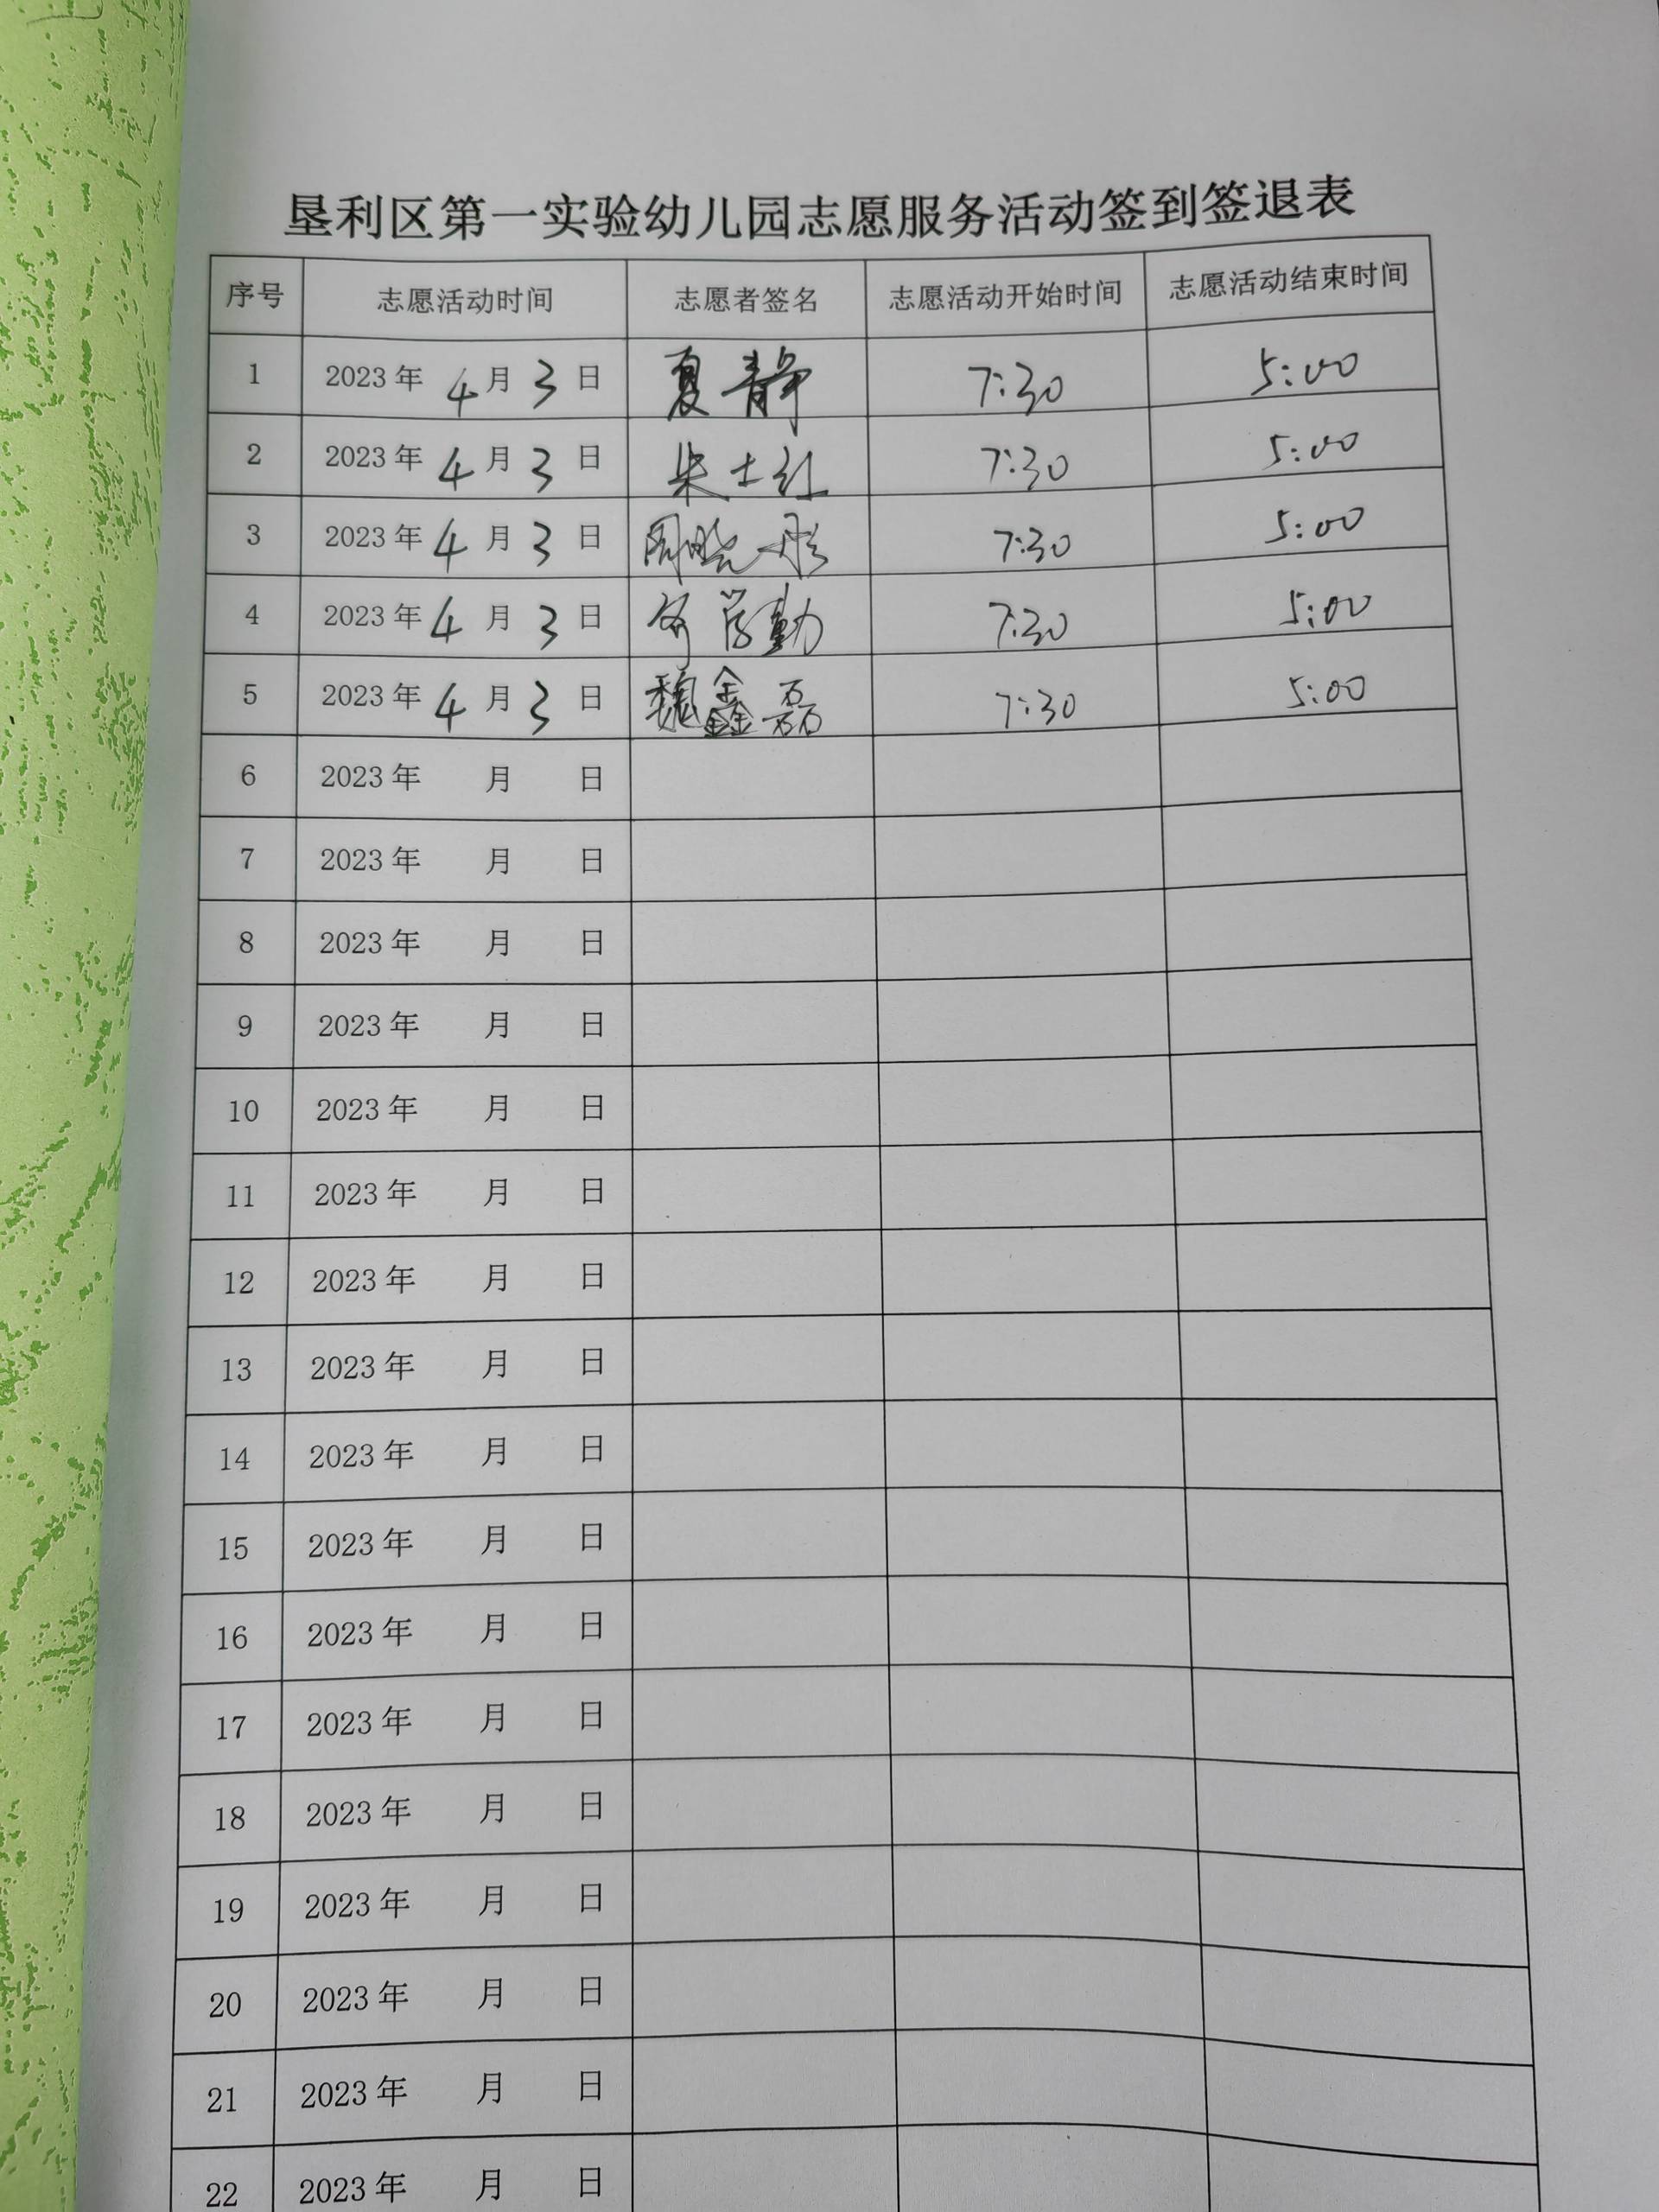 垦利区第一实验幼儿园志愿服务活动签到签退表
序号 志愿活动时间 志愿者签名 志愿活动开始时间 志愿活动结束时间
1 2023年 4月 3日 夏静 7:30 5:00
2 2023年 4月 3日 朱士红 7:30 5:00
3 2023年 4月 3日 周晓彤 7:30 5:00
4 2023年 4月 3日 7:30 5:00
5 2023年 4月 3日 魏鑫磊 7:30 5:00
6 2023年 月 日
7 2023年 月 日
8 2023年 月 日
9 2023年 月 日
10 2023年 月 日
11 2023年 月 日
12 2023年 月 日
13 2023年 月 日
14 2023年 月 日
15 2023年 月 日
16 2023年 月 日
17 2023年 月 日
18 2023年 月 日
19 2023年 月 日
20 2023年 月 日
21 2023年 月 日
22 2023年 月 日